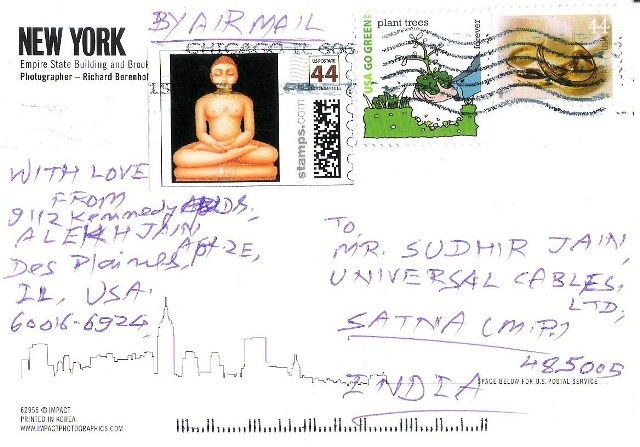 BY AIR MAIL
NEW YORK
Empire State Building and Brook
Photographer – Richard Berenhol
CHICAGO IL 600
US POSTAGE
44
stamps.com
USA GO GREEN
plant trees
forever
44
USA
WITH LOVE
FROM
9112 Kennedy
ALEKH JAIN,
Apt. 2E,
Des Plaines,
IL, USA.
60016-6924,
To,
MR. SUDHIR JAIN,
UNIVERSAL CABLES,
LTD,
SATNA (M.P.)
485005
INDIA
SPACE BELOW FOR U.S. POSTAL SERVICE
62956 © IMPACT
PRINTED IN KOREA
WWW.IMPACTPHOTOGRAPHICS.COM